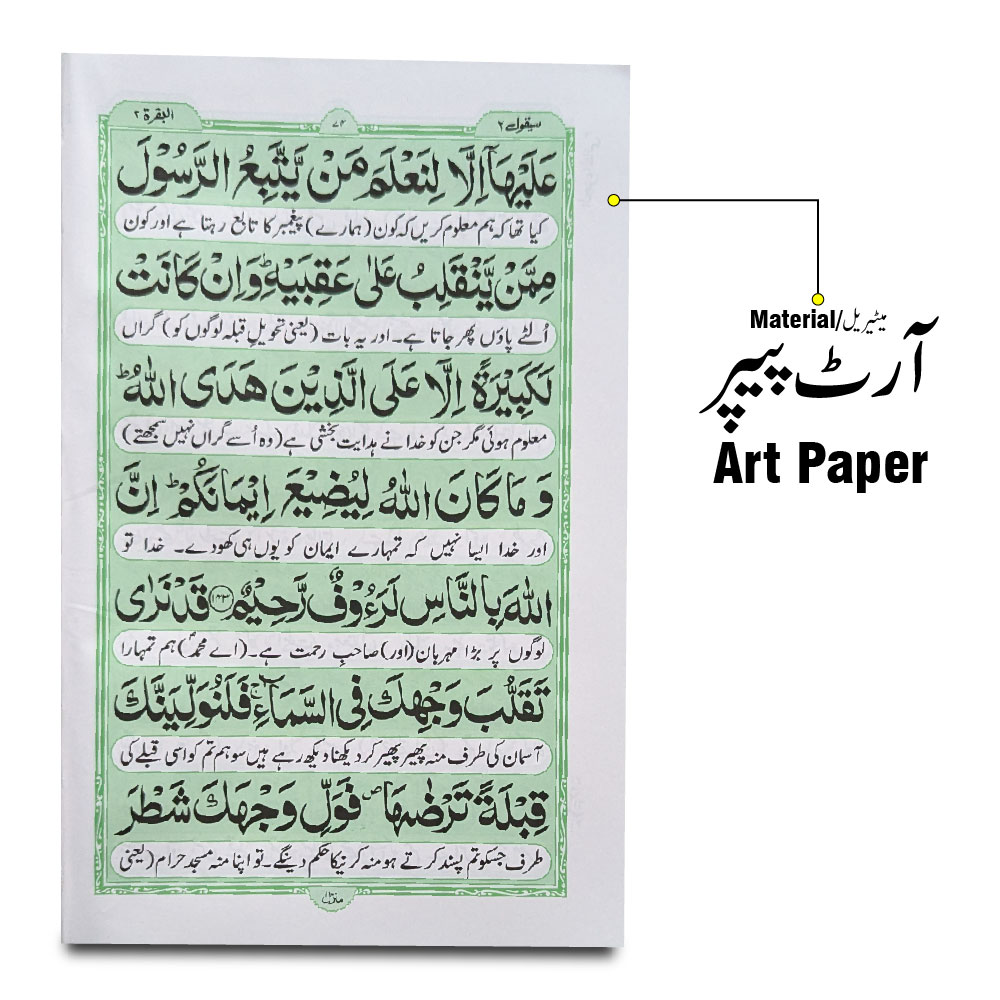 سیقول ۲
۷۴
البقرة ۲
عَلَيْهَآ اِلَّا لِنَعْلَمَ مَنْ يَّتَّبِعُ الرَّسُوْلَ
کیا تھا کہ ہم معلوم کریں کہ کون (ہمارے) پیغمبر کا تابع رہتا ہے اور کون
مِمَّنْ يَّنْقَلِبُ عَلٰى عَقِبَيْهِ ؕ وَاِنْ كَانَتْ
اُلٹے پاؤں پھر جاتا ہے۔ اور یہ بات (یعنی تحویلِ قبلہ لوگوں کو) گراں
لَكَبِيْرَةً اِلَّا عَلَى الَّذِيْنَ هَدَى اللّٰهُ ؕ
معلوم ہوئی مگر جن کو خدا نے ہدایت بخشی ہے (وہ اُسے گراں نہیں سمجھتے)
وَمَا كَانَ اللّٰهُ لِيُضِيْعَ اِيْمَانَكُمْ ؕ اِنَّ
اور خدا ایسا نہیں کہ تمہارے ایمان کو یوں ہی کھو دے۔ خدا تو
اللّٰهَ بِالنَّاسِ لَرَءُوْفٌ رَّحِيْمٌ ۱۴۳ قَدْ نَرٰى
لوگوں پر بڑا مہربان (اور) صاحبِ رحمت ہے۔ (اے محمدؐ) ہم تمہارا
تَقَلُّبَ وَجْهِكَ فِى السَّمَآءِ ۚ فَلَنُوَلِّيَنَّكَ
آسمان کی طرف منہ پھیر پھیر کر دیکھنا دیکھ رہے ہیں سو ہم تم کو اسی قبلے کی
قِبْلَةً تَرْضٰىهَا ص فَوَلِّ وَجْهَكَ شَطْرَ
طرف جسکو تم پسند کرتے ہو منہ کرنیکا حکم دینگے۔ تو اپنا منہ مسجد حرام (یعنی
منزل ۱
Material/میٹیریل
آرٹ پیپر
Art Paper